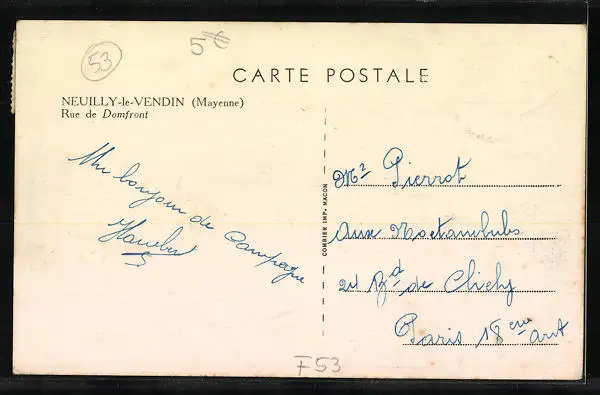 53
5€
CARTE POSTALE
NEUILLY-le-VENDIN (Mayenne)
Rue de Domfront
Un bonjour de Campagne
COMBIER IMP. MACON
Mr Pierrot
Aux Noctambules
24 Bd de Clichy
Paris 18eme arrt
F53